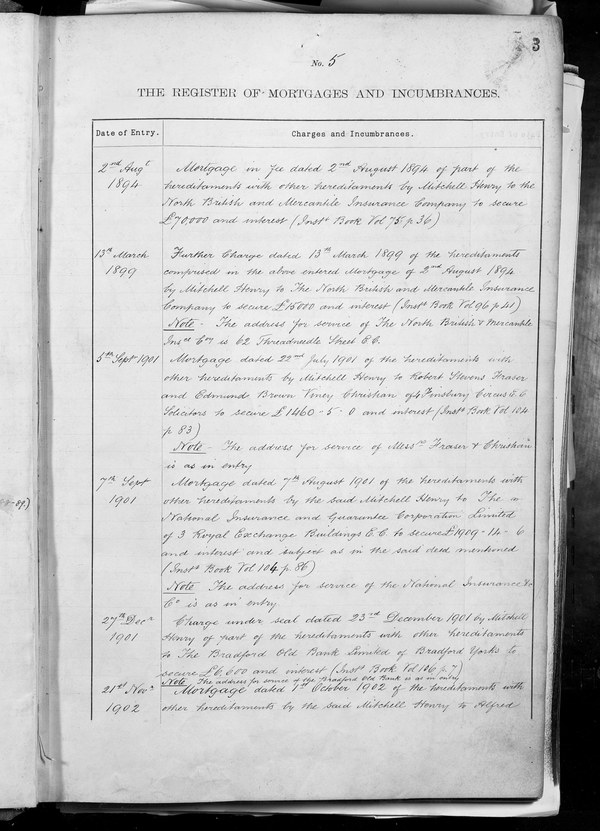 3
No. 5
THE REGISTER OF MORTGAGES AND INCUMBRANCES.
Date of Entry.
Charges and Incumbrances.
2nd Augt
1894
Mortgage in Fee dated 2nd August 1894 of part of the
hereditaments with other hereditaments by Mitchell Henry to the
North British and Mercantile Insurance Company to secure
£70,000 and interest (Instt Book Vol 75 p 36)
13th March
1899
Further Charge dated 13th March 1899 of the hereditaments
comprised in the above entered Mortgage of 2nd August 1894
by Mitchell Henry to The North British and Mercantile Insurance
Company to secure £15000 and interest (Instt Book Vol 96 p 41)
Note - The address for service of The North British & Mercantile
Insce Coy is 62 Threadneedle Street E.C.
5th Sept 1901
Mortgage dated 22nd July 1901 of the hereditaments with
other hereditaments by Mitchell Henry to Robert Stevens Fraser
and Edmund Brown Viney Christian of 4 Finsbury Circus E.C
Solicitors to secure £1460-5-0 and interest (Instt Book Vol 104
p 83)
Note - The address for service of Messrs Fraser & Christian
is as in entry
7th Sept
1901
Mortgage dated 7th August 1901 of the hereditaments with
other hereditaments by the said Mitchell Henry to The
National Insurance and Guarantee Corporation Limited
of 3 Royal Exchange Buildings E.C. to secure £1909-14-6
and interest and subject as in the said deed mentioned
(Instt Book Vol 104 p. 86)
Note The address for service of the National Insurance &c
Co is as in entry
27th Decr
1901
Charge under seal dated 23rd December 1901 by Mitchell
Henry of part of the hereditaments with other hereditaments
to The Bradford Old Bank Limited of Bradford Yorks to
secure £6,600 and interest (Instt Book Vol 106 p. 7)
Note The address for service of the Bradford Old Bank is as in entry
21st Novr
1902
Mortgage dated 1st October 1902 of the hereditaments with
other hereditaments by the said Mitchell Henry to Alfred